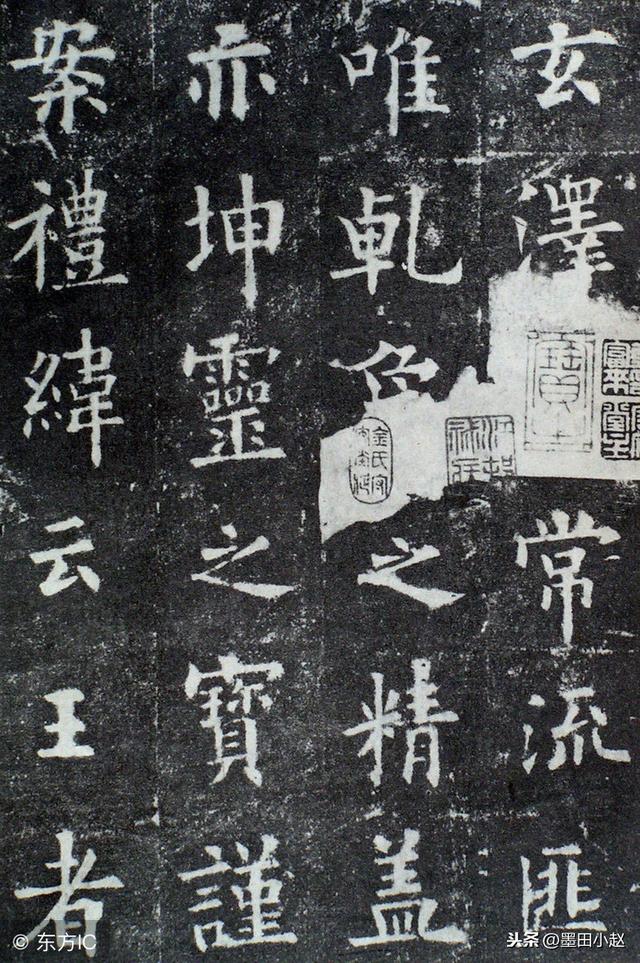 玄澤常流匪
唯乹之精盖
亦坤靈之寶謹
案禮緯云王者
© 东方IC
头条@墨田小赵